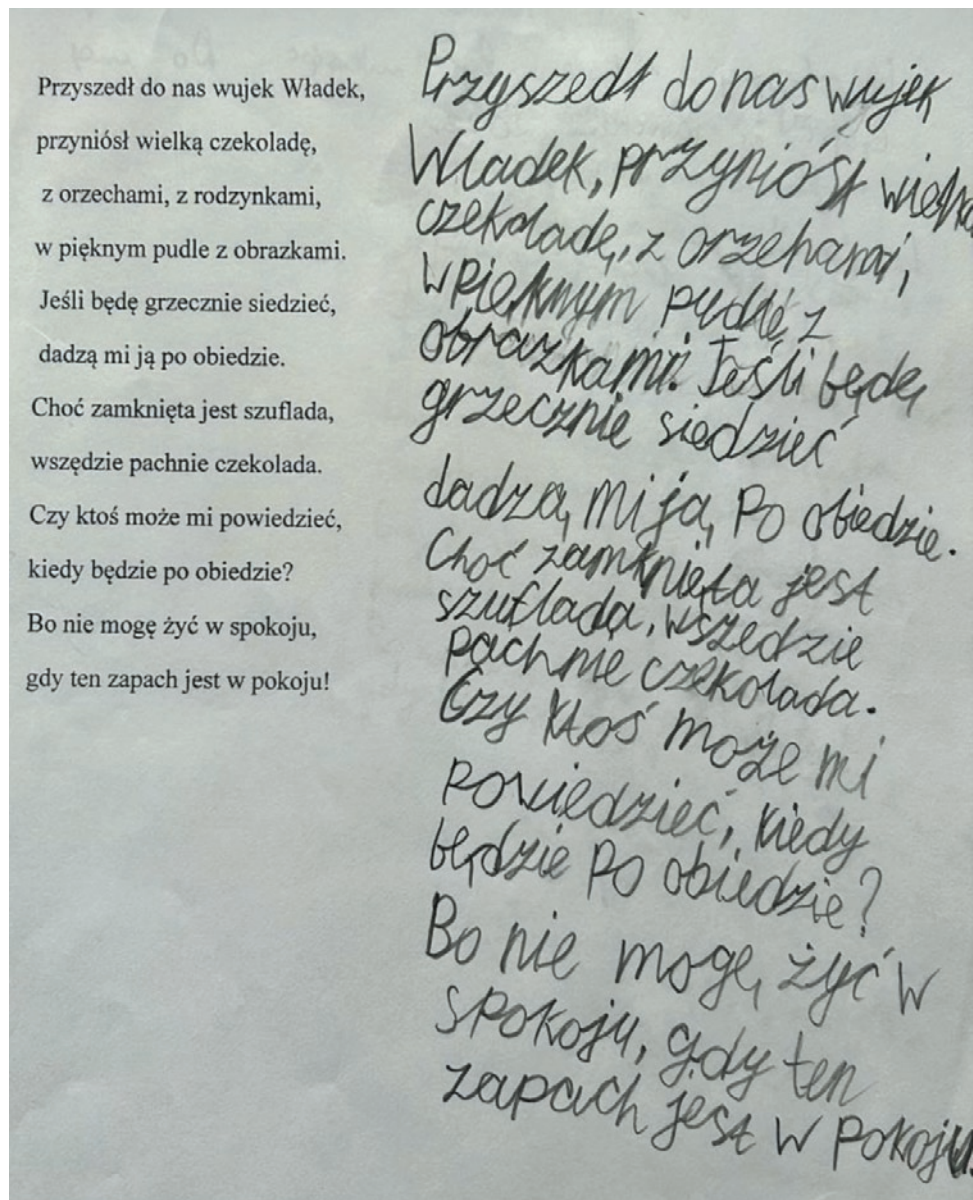 Przyszedł do nas wujek Władek,
przyniósł wielką czekoladę,
z orzechami, z rodzynkami,
w pięknym pudle z obrazkami.
Jeśli będę grzecznie siedzieć,
dadzą mi ją po obiedzie.
Choć zamknięta jest szuflada,
wszędzie pachnie czekolada.
Czy ktoś może mi powiedzieć,
kiedy będzie po obiedzie?
Bo nie mogę żyć w spokoju,
gdy ten zapach jest w pokoju!
Przyszedł do nas wujek
Władek, przyniósł wielka
czekoladę, z orzehami,
w pięknym pudlę z
obrazkami. Jeśli będę
grzecznie siedzieć
dadzą mi ją po obiedzie.
Choć zamknięta jest
szuflada, wszędzie
pachnie czekolada.
Czy ktoś może mi
powiedzieć, kiedy
będzie po obiedzie?
Bo nie mogę żyć w
spokoju, gdy ten
zapach jest w pokoju.